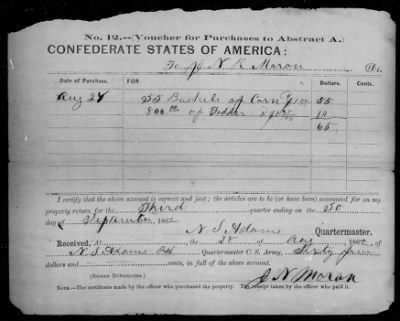 No. 12.—(Voucher for Purchases to Abstract A.)
CONFEDERATE STATES OF AMERICA:
To J. N. R. Moran Dr.
Date of Purchase. FOR Dollars. Cents.
Aug 24 55 Bushels of Corn 55
800 lb of Fodder 10
65
I certify that the above account is correct and just; the articles are to (or have been) accounted for on my
property return for the Third quarter ending on the 30
day of September 186
N S Adams Quartermaster.
Received, at the 28 of 186 , of
N S Adams Quartermaster C. S. Army, Sixty
dollars and cents, in full of the above account.
(SIGNED DUPLICATES.)
J N Moran
NOTE.—The certificate made by the officer who purchased the property. The receipt taken by the officer who paid it.